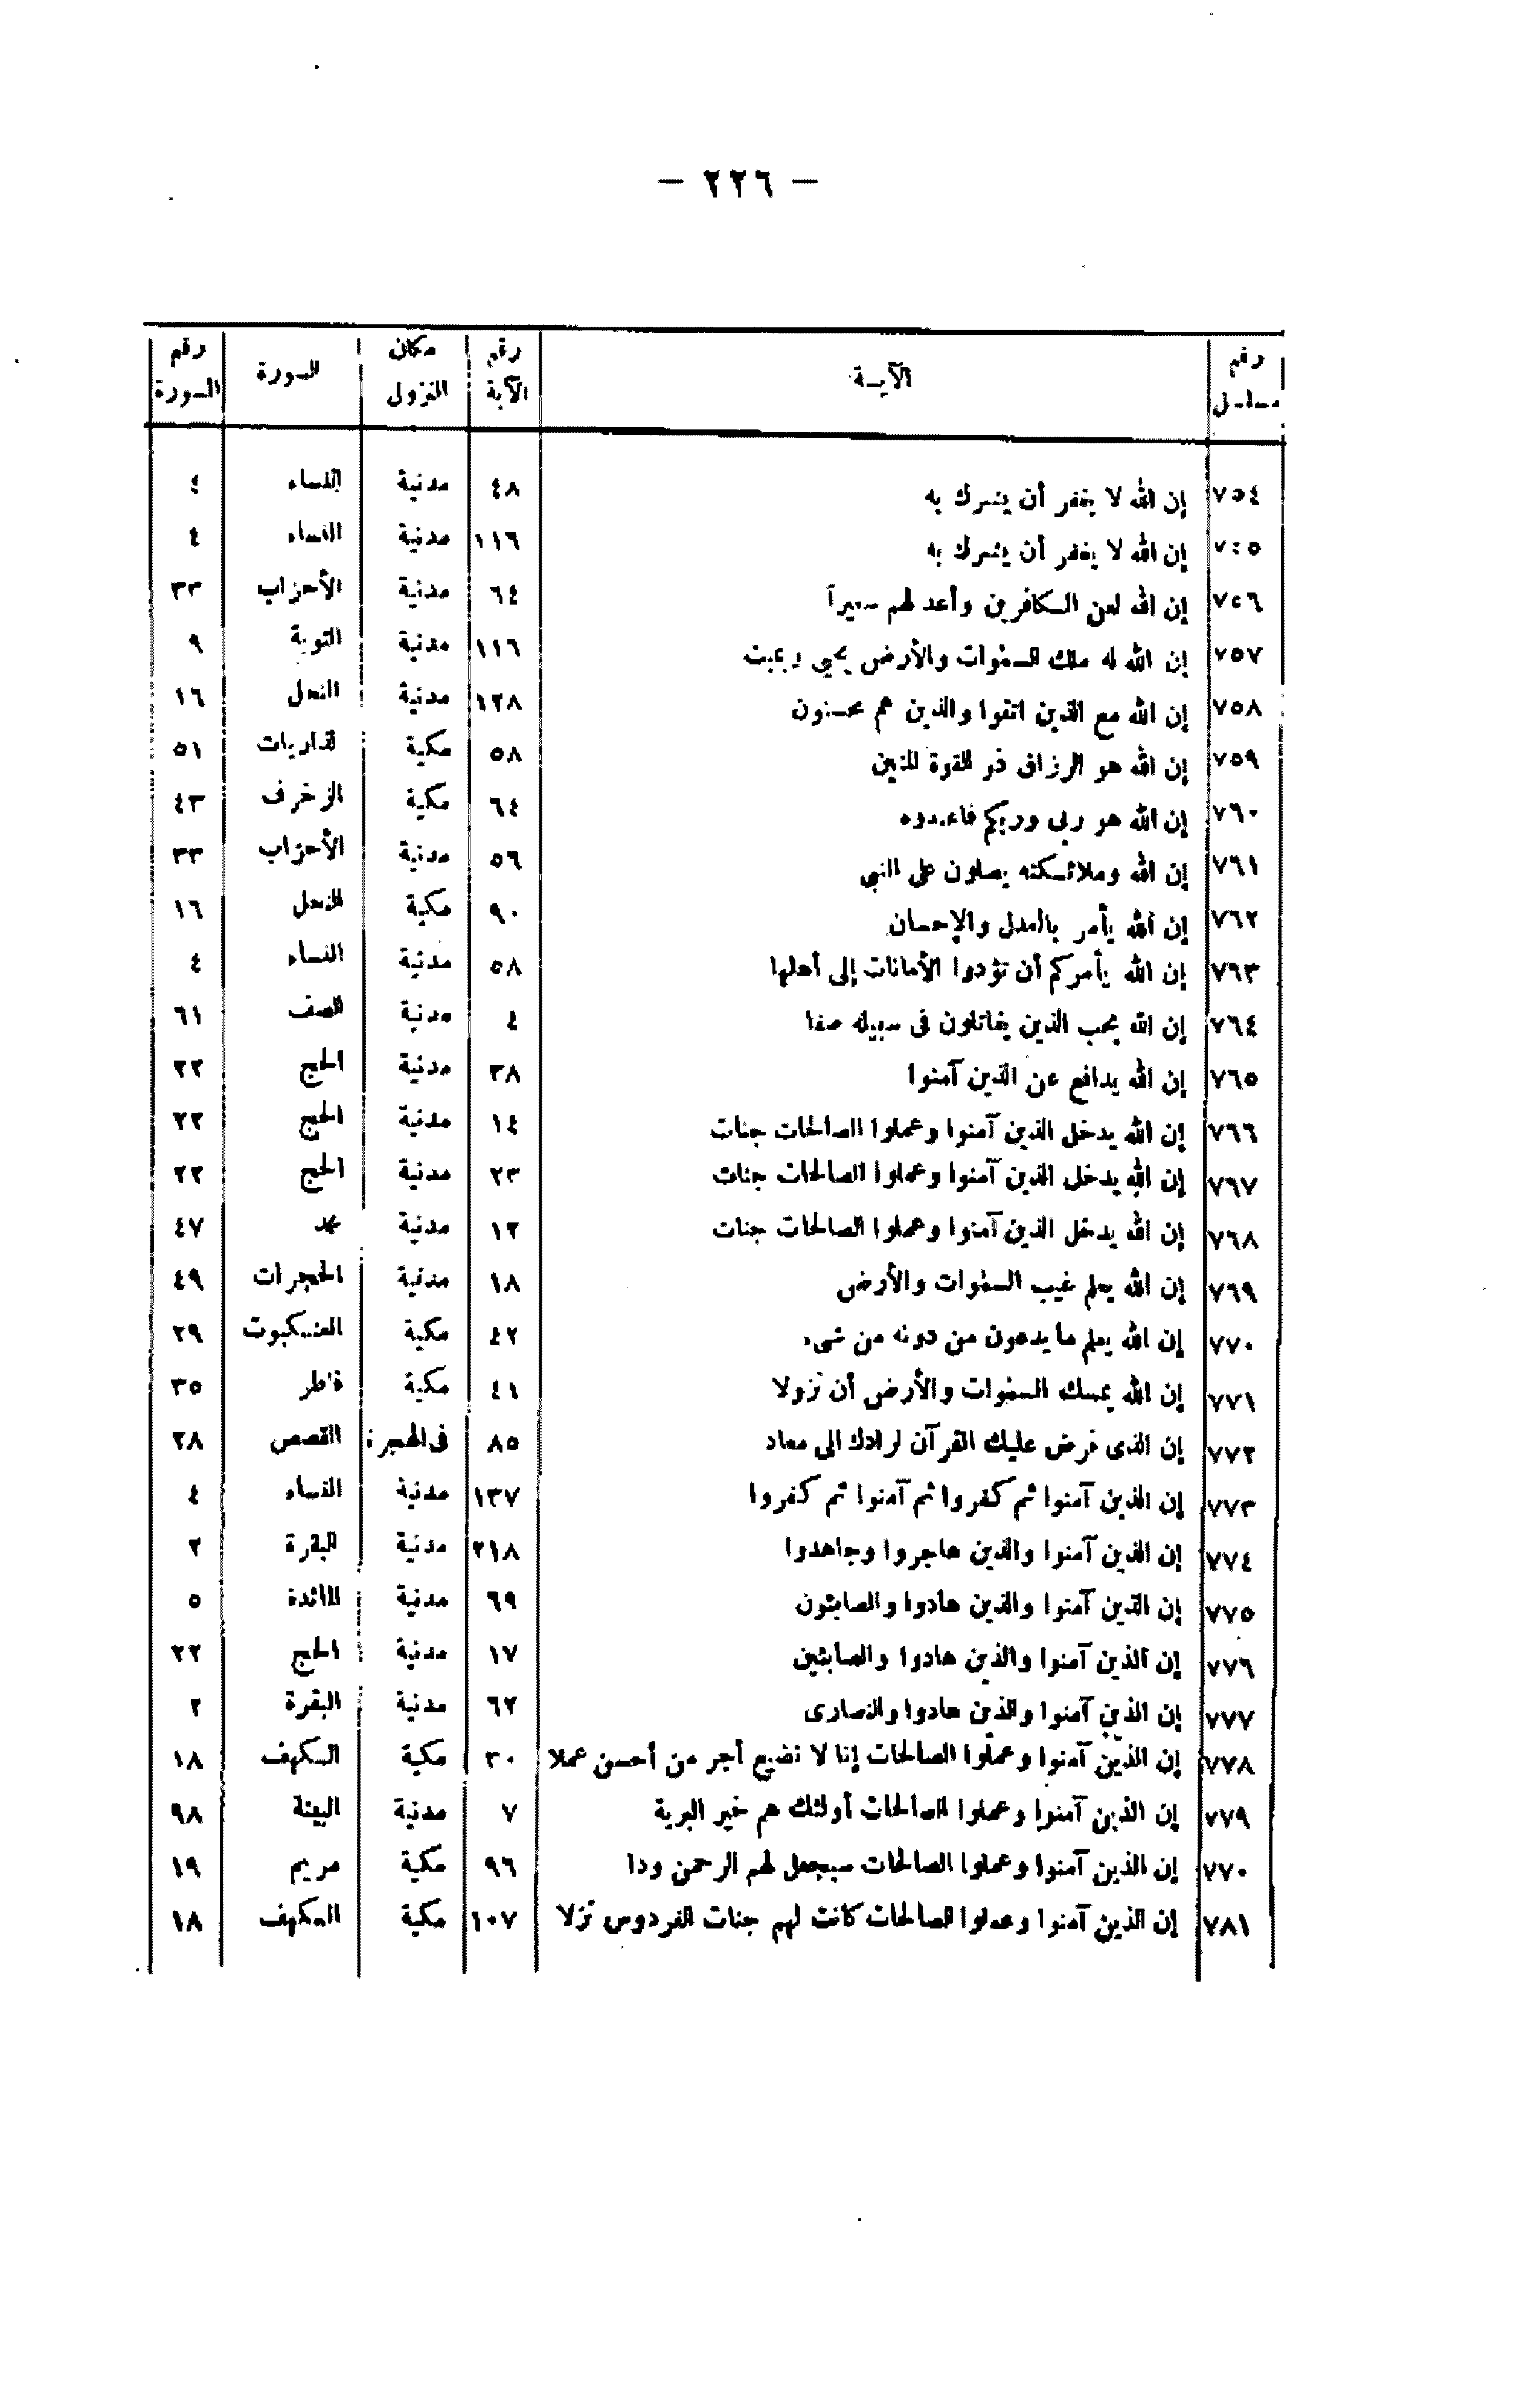 — ٢٢٦ —
رقم مسلسل | الآيـة | رقم الآية | مكان النزول | السورة | رقم السورة
٧٥٤ | إن الله لا يغفر أن يشرك به | ٤٨ | مدنية | النساء | ٤
٧٥٥ | إن الله لا يغفر أن يشرك به | ١١٦ | مدنية | النساء | ٤
٧٥٦ | إن الله لعن الكافرين وأعد لهم سعيراً | ٦٤ | مدنية | الأحزاب | ٣٣
٧٥٧ | إن الله له ملك السموات والأرض يحيي ويميت | ١١٦ | مدنية | التوبة | ٩
٧٥٨ | إن الله مع الذين اتقوا والذين هم محسنون | ١٢٨ | مدنية | النحل | ١٦
٧٥٩ | إن الله هو الرزاق ذو القوة المتين | ٥٨ | مكية | الذاريات | ٥١
٧٦٠ | إن الله هو ربى وربكم فاعبدوه | ٦٤ | مكية | الزخرف | ٤٣
٧٦١ | إن الله وملائكته يصلون على النبى | ٥٦ | مدنية | الأحزاب | ٣٣
٧٦٢ | إن الله يأمر بالعدل والإحسان | ٩٠ | مكية | النحل | ١٦
٧٦٣ | إن الله يأمركم أن تؤدوا الأمانات إلى أهلها | ٥٨ | مدنية | النساء | ٤
٧٦٤ | إن الله يحب الذين يقاتلون فى سبيله صفا | ٤ | مدنية | الصف | ٦١
٧٦٥ | إن الله يدافع عن الذين آمنوا | ٣٨ | مدنية | الحج | ٢٢
٧٦٦ | إن الله يدخل الذين آمنوا وعملوا الصالحات جنات | ١٤ | مدنية | الحج | ٢٢
٧٦٧ | إن الله يدخل الذين آمنوا وعملوا الصالحات جنات | ٢٣ | مدنية | الحج | ٢٢
٧٦٨ | إن الله يدخل الذين آمنوا وعملوا الصالحات جنات | ١٢ | مدنية | محمد | ٤٧
٧٦٩ | إن الله يعلم غيب السموات والأرض | ١٨ | مدنية | الحجرات | ٤٩
٧٧٠ | إن الله يعلم ما يدعون من دونه من شىء | ٤٢ | مكية | العنكبوت | ٢٩
٧٧١ | إن الله يمسك السموات والأرض أن تزولا | ٤١ | مكية | فاطر | ٣٥
٧٧٢ | إن الذى فرض عليك القرآن لرادك الى معاد | ٨٥ | فى الهجرة | القصص | ٢٨
٧٧٣ | إن الذين آمنوا ثم كفروا ثم آمنوا ثم كفروا | ١٣٧ | مدنية | النساء | ٤
٧٧٤ | إن الذين آمنوا والذين هاجروا وجاهدوا | ٢١٨ | مدنية | البقرة | ٢
٧٧٥ | إن الذين آمنوا والذين هادوا والصابئون | ٦٩ | مدنية | المائدة | ٥
٧٧٦ | إن الذين آمنوا والذين هادوا والصابئين | ١٧ | مدنية | الحج | ٢٢
٧٧٧ | إن الذين آمنوا والذين هادوا والنصارى | ٦٢ | مدنية | البقرة | ٢
٧٧٨ | إن الذين آمنوا وعملوا الصالحات إنا لا نضيع أجر من أحسن عملا | ٣٠ | مكية | الكهف | ١٨
٧٧٩ | إن الذين آمنوا وعملوا الصالحات أولئك هم خير البرية | ٧ | مدنية | البينة | ٩٨
٧٧٠ | إن الذين آمنوا وعملوا الصالحات سيجعل لهم الرحمن ودا | ٩٦ | مكية | مريم | ١٩
٧٨١ | إن الذين آمنوا وعملوا الصالحات كانت لهم جنات الفردوس نزلا | ١٠٧ | مكية | الكهف | ١٨